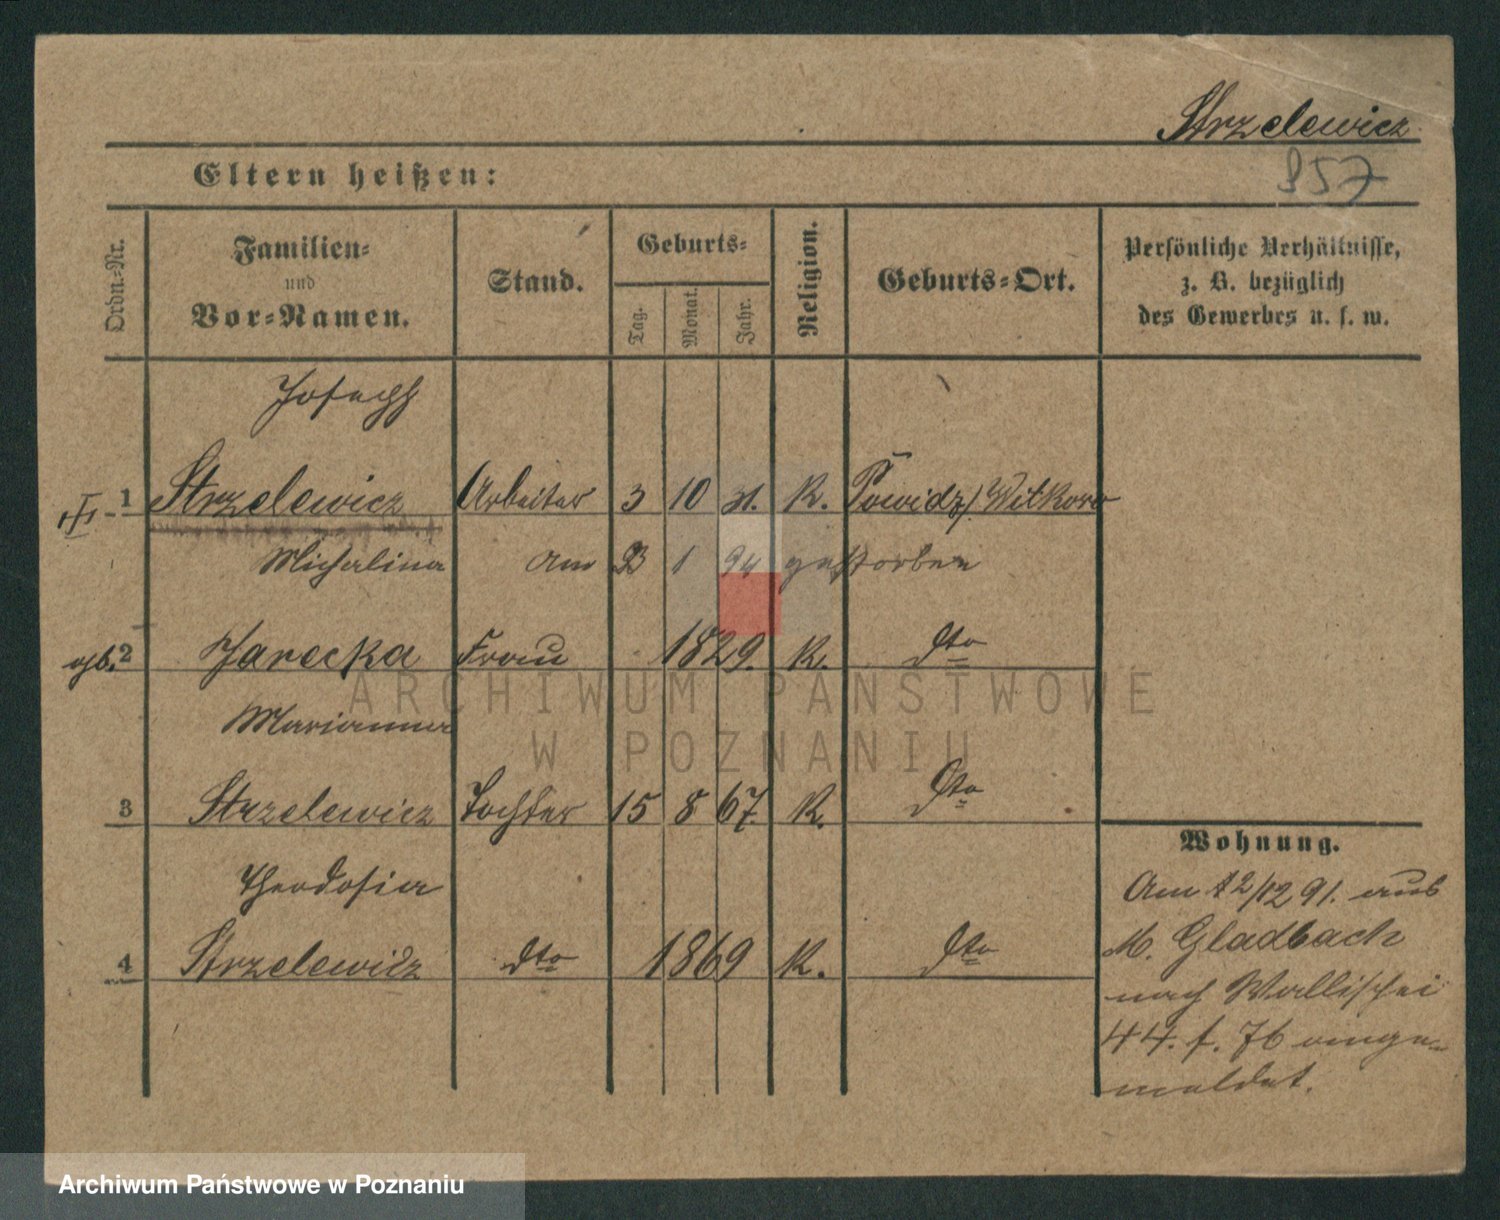 Strzelewicz
857
Eltern heißen:
Ordn.-Nr.
Familien-
und
Vor-Namen.
Stand.
Geburts-
Tag.
Monat.
Jahr.
Religion.
Geburts-Ort.
Persönliche Verhältnisse,
z. B. bezüglich
des Gewerbes u. s. w.
Joseph
1 Strzelewicz Arbeiter 3 10 31. K. Powidz/Witkowo
Michalina am 23 1 94 gestorben
gb. 2 Jarecka Frau 1829. K. dto
Marianna
3 Strzelewicz Tochter 15 8 67. K. dto
Theodosia
4 Strzelewicz dto 1869 K. dto
Wohnung.
Am 12/12 91. aus
M. Gladbach
nach Wallischei
44. f. 76 einge-
meldet.
ARCHIWUM PAŃSTWOWE
W POZNANIU
Archiwum Państwowe w Poznaniu